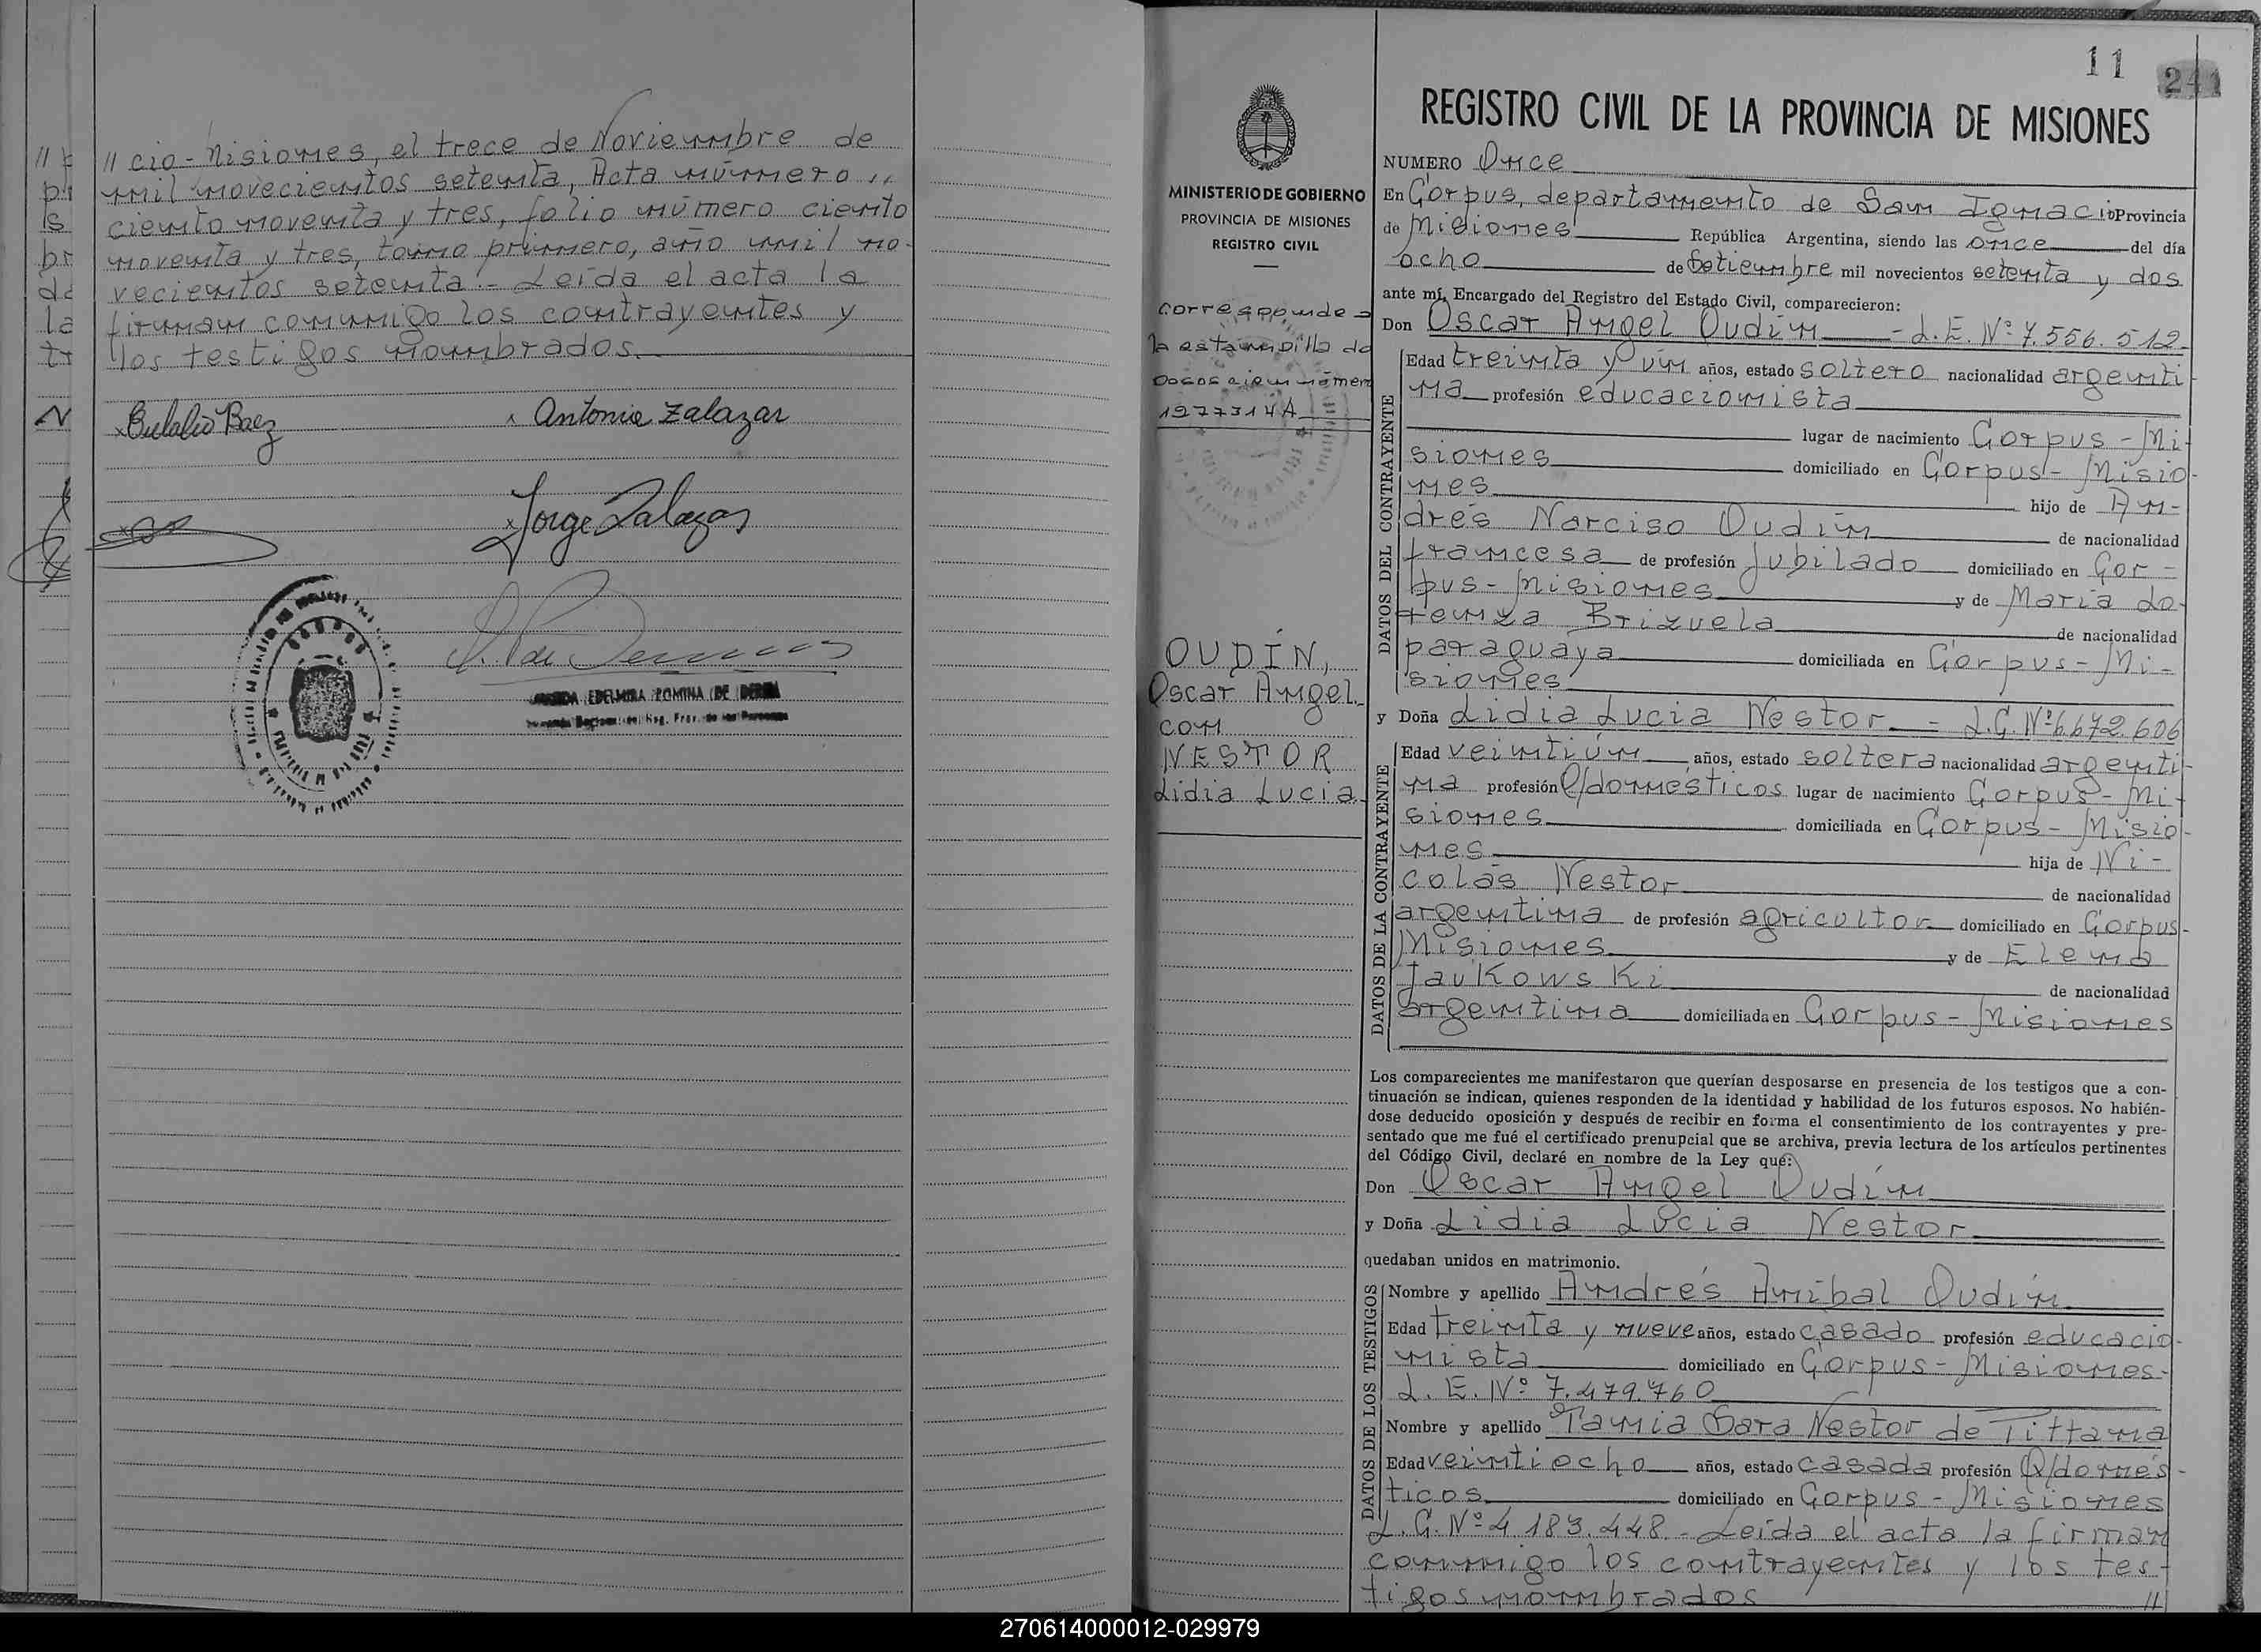 // cio - Misiones, el trece de Noviembre de
mil novecientos setenta, Acta número ,,
ciento noventa y tres, folio número ciento
noventa y tres, tomo primero, año mil no-
vecientos setenta.- Leída el acta la
firman conmigo los contrayentes y
los testigos nombrados.
Eulalio Baez
Antonia Zalazar
Jorge Zalazar
11
241
REGISTRO CIVIL DE LA PROVINCIA DE MISIONES
MINISTERIO DE GOBIERNO
PROVINCIA DE MISIONES
REGISTRO CIVIL
corresponde a
la estampilla de
pesos cien número
1977314A
OUDÍN,
Oscar Angel.
con
NESTOR
Lidia Lucia.
NUMERO Once
En Corpus, departamento de San Ignacio Provincia
de Misiones República Argentina, siendo las once del día
ocho de Setiembre mil novecientos setenta y dos
ante mí, Encargado del Registro del Estado Civil, comparecieron:
Don Oscar Angel Oudín - L.E. Nº 7.556.512
DATOS DEL CONTRAYENTE
Edad treinta y ún años, estado soltero nacionalidad argenti-
na profesión educacionista
lugar de nacimiento Corpus - Mi-
siones domiciliado en Corpus - Misio-
nes hijo de An-
drés Narciso Oudín de nacionalidad
francesa de profesión Jubilado domiciliado en Cor-
pus - Misiones y de María Lo-
renza Brizuela de nacionalidad
paraguaya domiciliada en Corpus - Mi-
siones
y Doña Lidia Lucia Nestor = L.C. Nº 6.672.606
DATOS DE LA CONTRAYENTE
Edad veintiún años, estado soltera nacionalidad argenti-
na profesión Q/domésticos lugar de nacimiento Corpus - Mi-
siones domiciliada en Corpus - Misio-
nes hija de Ni-
colás Nestor de nacionalidad
argentina de profesión agricultor domiciliado en Corpus-
Misiones y de Elena
Jaukowski de nacionalidad
argentina domiciliada en Corpus - Misiones
Los comparecientes me manifestaron que querían desposarse en presencia de los testigos que a con-
tinuación se indican, quienes responden de la identidad y habilidad de los futuros esposos. No habién-
dose deducido oposición y después de recibir en forma el consentimiento de los contrayentes y pre-
sentado que me fué el certificado prenupcial que se archiva, previa lectura de los artículos pertinentes
del Código Civil, declaré en nombre de la Ley que:
Don Oscar Angel Oudín
y Doña Lidia Lucia Nestor
quedaban unidos en matrimonio.
DATOS DE LOS TESTIGOS
Nombre y apellido Andrés Anibal Oudín
Edad treinta y nueve años, estado casado profesión educacio-
nista domiciliado en Corpus - Misiones-
L.E. Nº 7.479.760
DATOS DE LOS TESTIGOS
Nombre y apellido Tania Sara Nestor de Tittana
Edad veintiocho años, estado casada profesión Q/domés-
ticos domiciliado en Corpus - Misiones
L.C. Nº 4.183.448.- Leída el acta la firman
conmigo los contrayentes y los tes-
tigos nombrados //
270614000012-029979